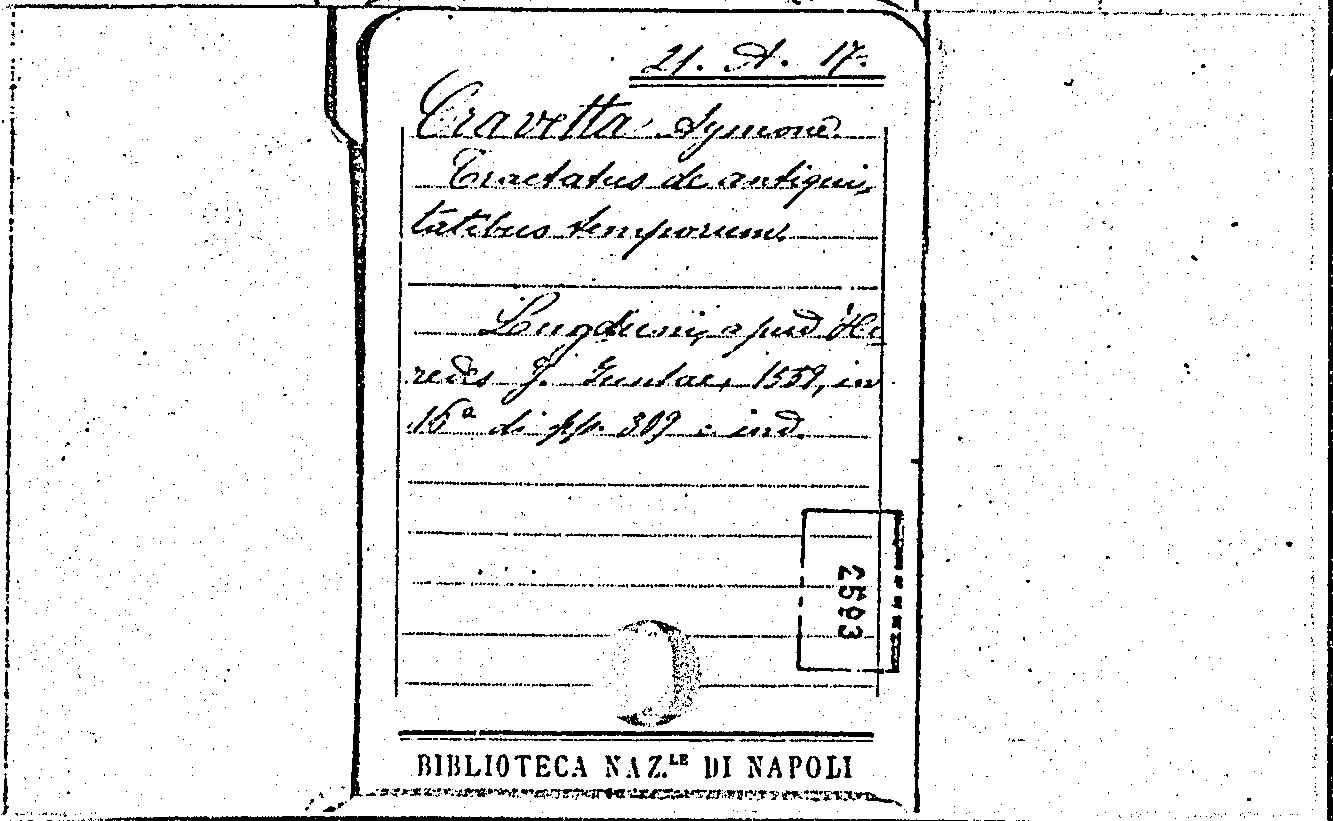 21. A. 17.
Cravetta Aymone
Tractatus de antiqui,
tatibus temporum.
Lugduni, apud He
redes J. Juntae, 1559, in
16ª di pp. 309 e ind.
2593
BIBLIOTECA NAZ.LE DI NAPOLI